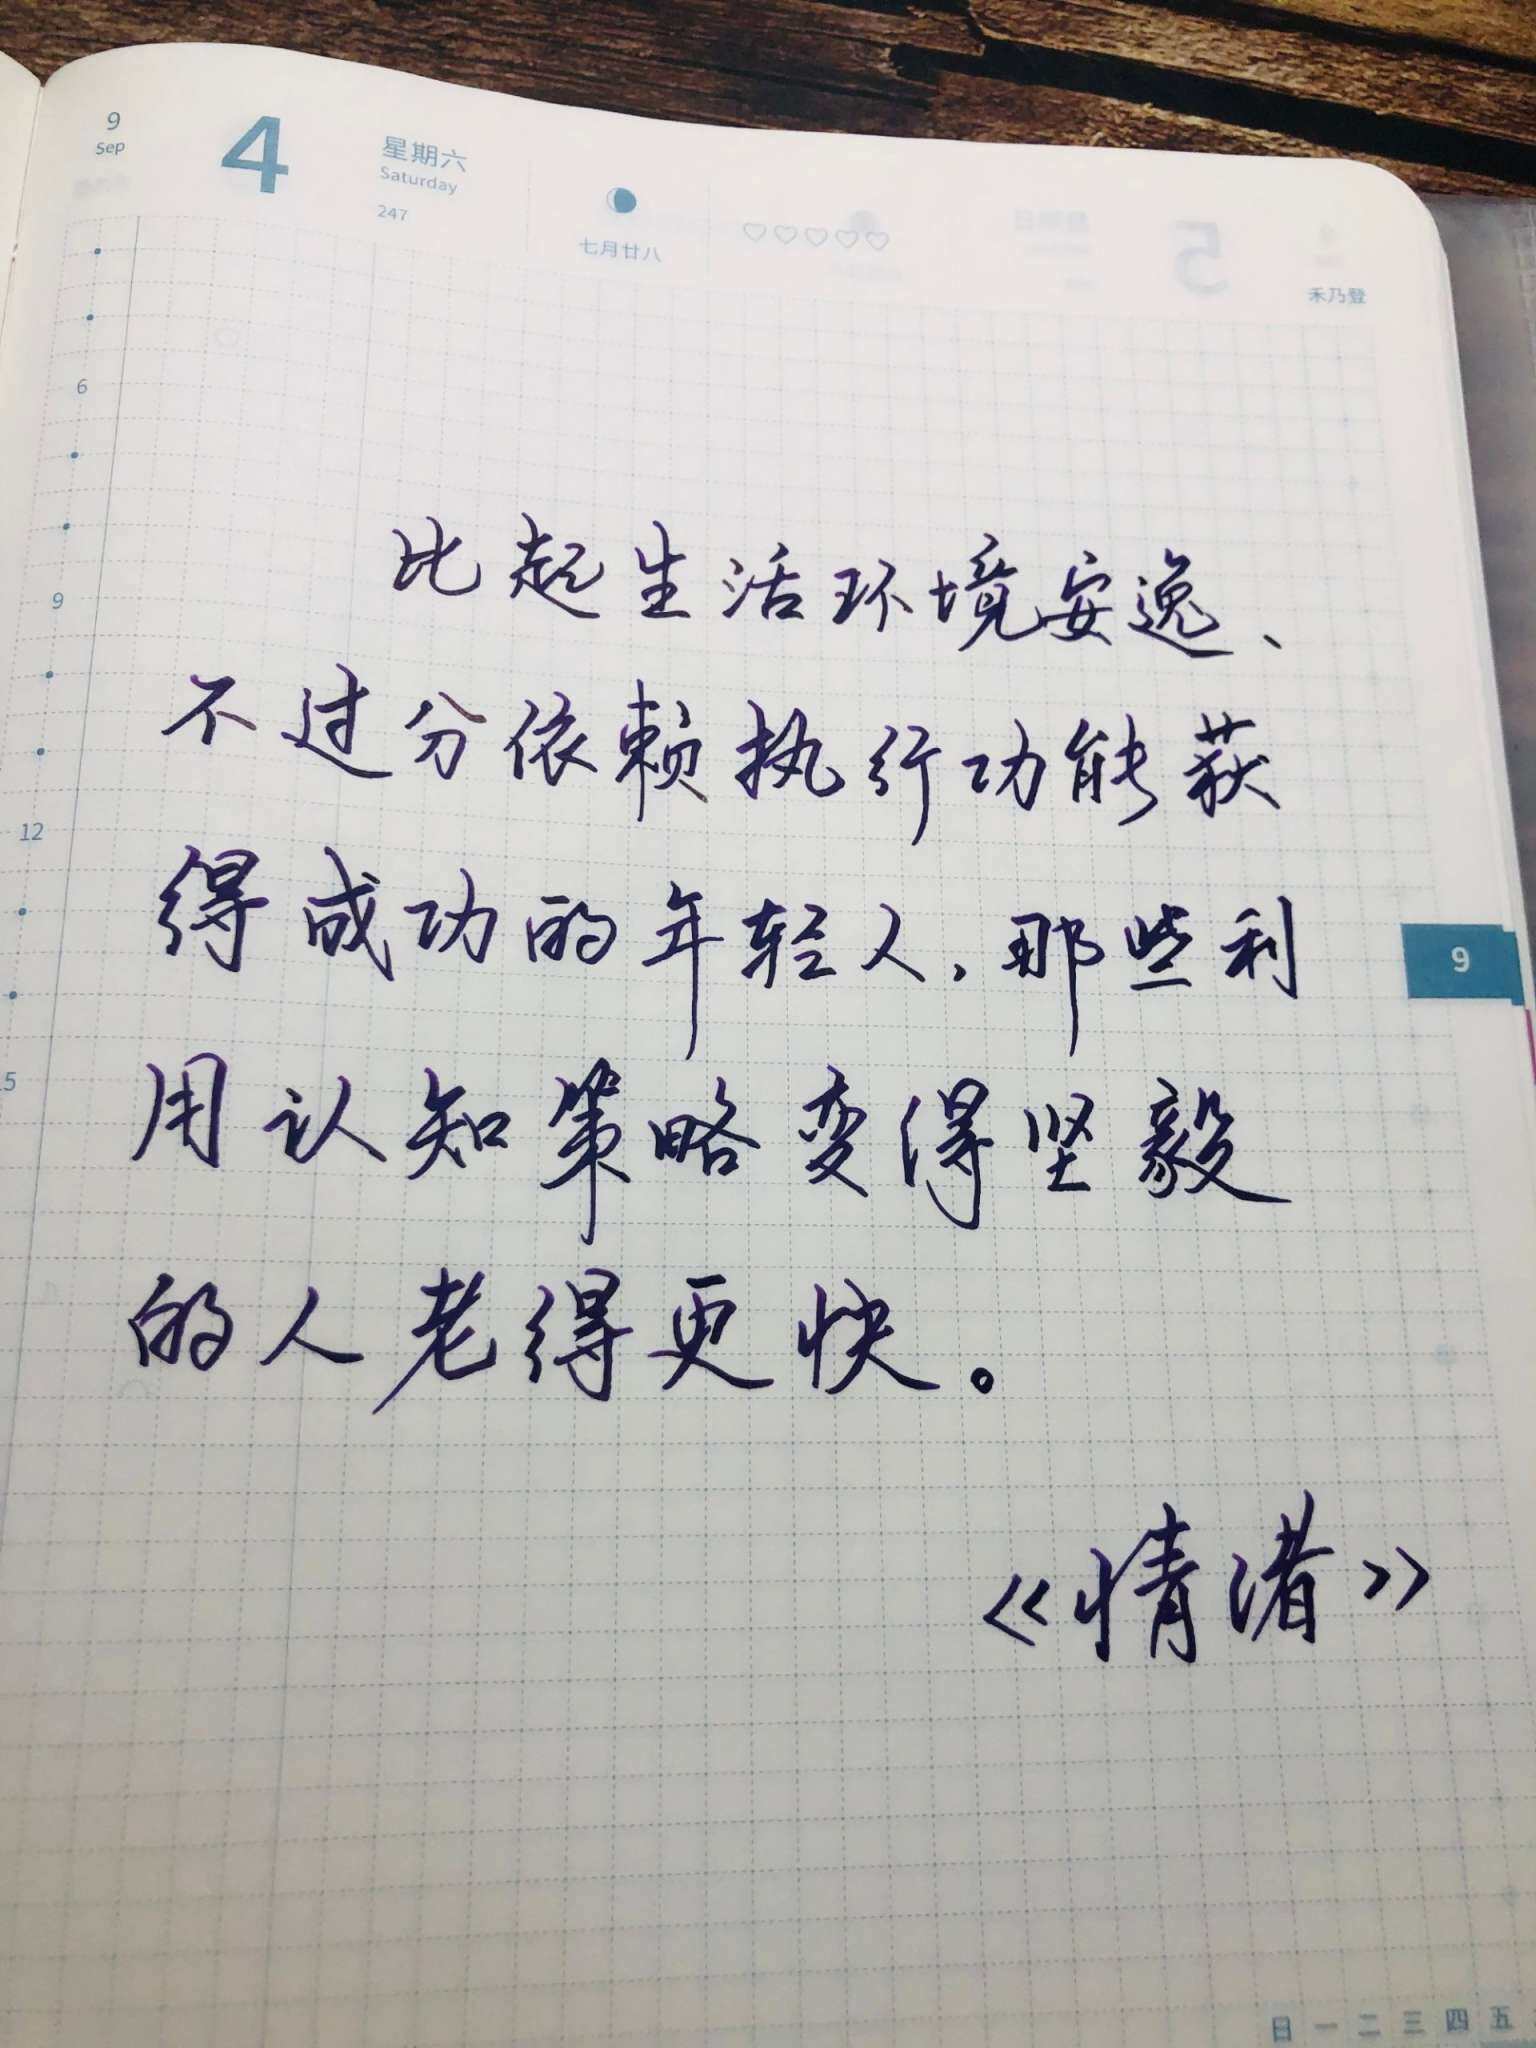 9
Sep
4
星期六
Saturday
247
七月廿八
禾乃登
6
9
12
比起生活环境安逸、
不过分依赖执行功能获
得成功的年轻人，那些利
用认知策略变得坚毅
的人老得更快。
《情渚》
9
5
日 一 二 三 四 五